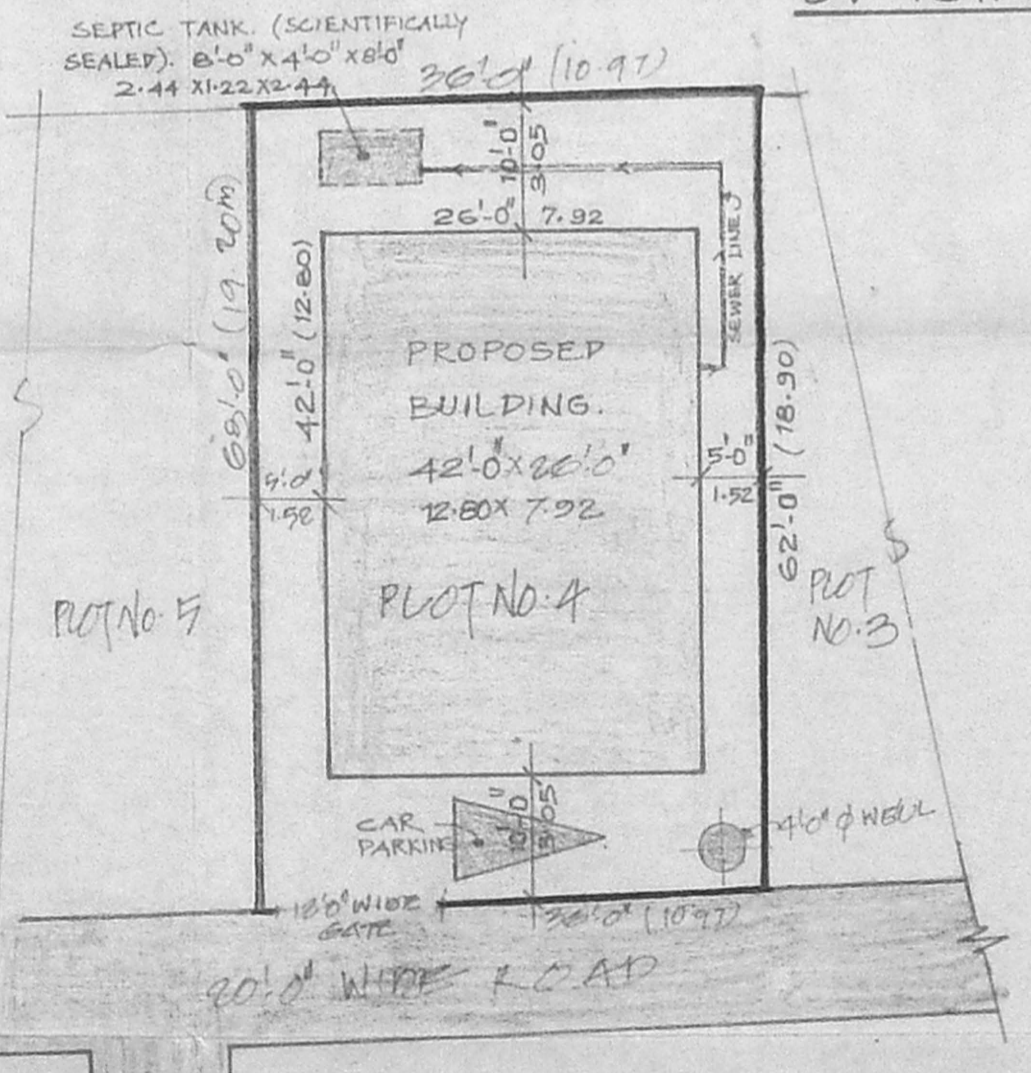 SEPTIC TANK. (SCIENTIFICALLY
SEALED). 8'-0" X 4'-0" X 8'-0"
2.44 X 1.22 X 2.44
36'-0" (10.97)
10'-0"
3.05
26'-0" 7.92
SEWER LINE
42'-0" (12.80)
(19.20m)
PROPOSED
BUILDING.
42'-0" X 26'-0"
12.80 X 7.92
5'-0"
1.52
5'-0"
1.52
62'-0" (18.90)
PLOT NO. 5
PLOT NO. 4
PLOT
NO. 3
CAR
PARKING
10'-0"
3.05
4'-0" φ WELL
WIDE
GATE
36'-0" (10.97)
20'-0" WIDE ROAD